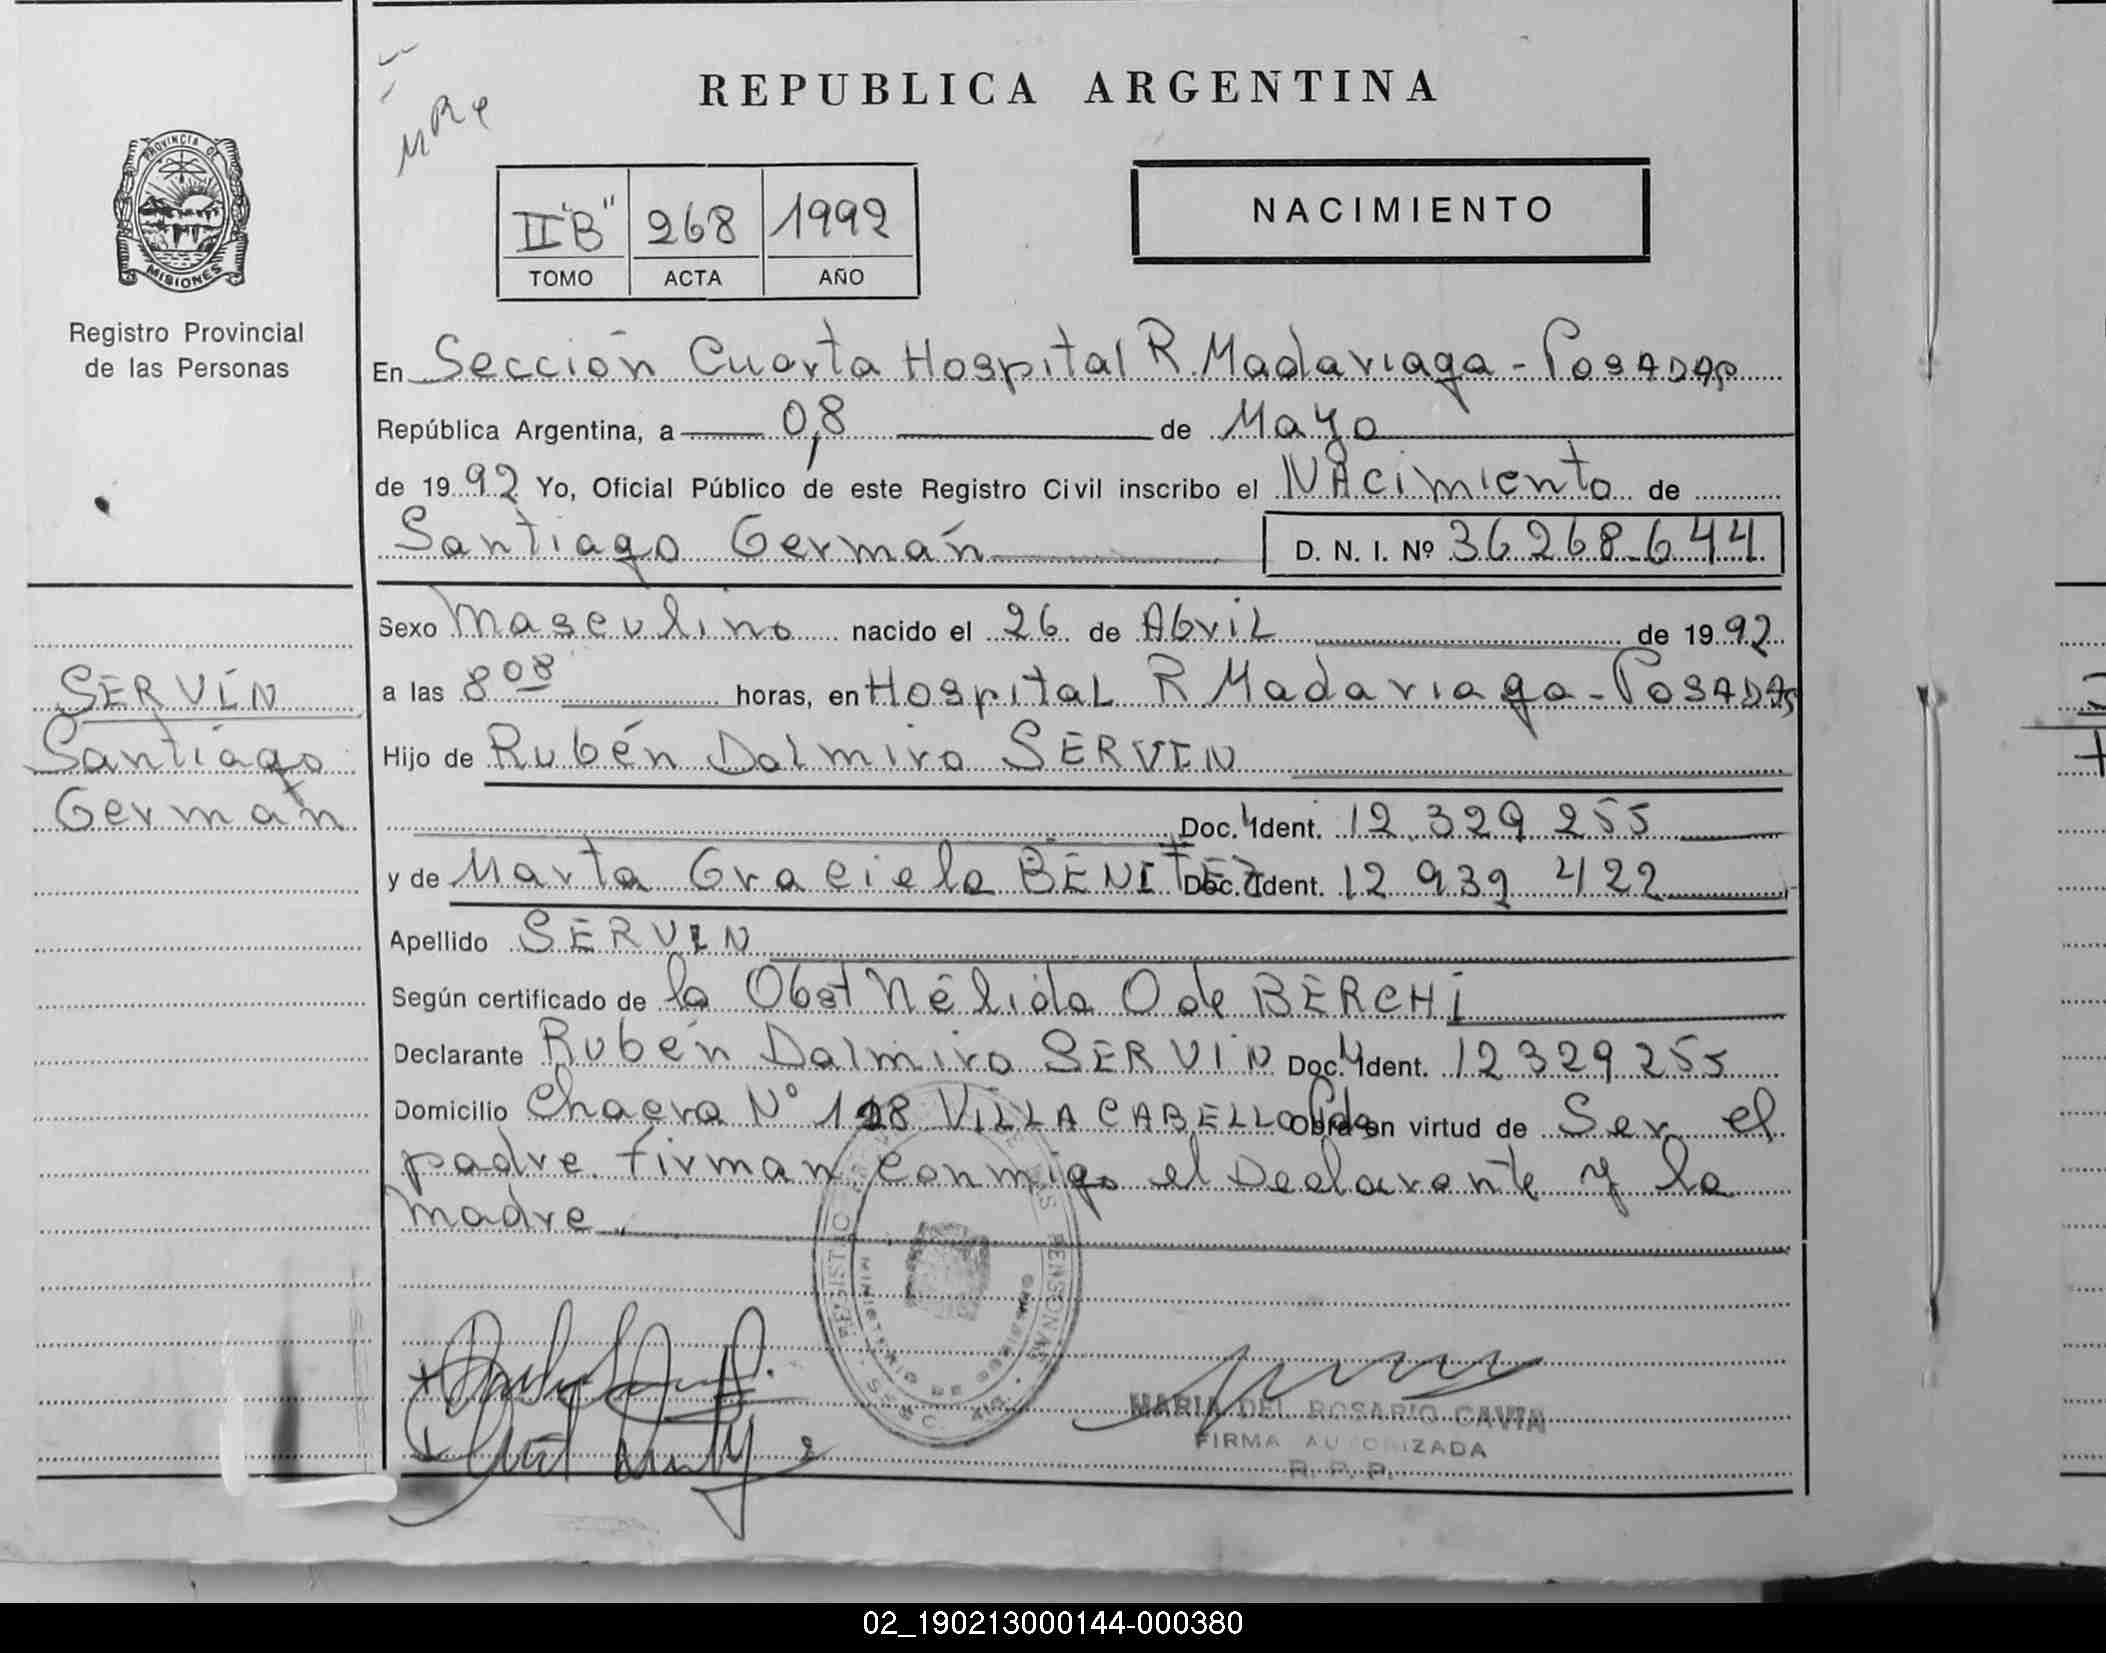 MRe
REPUBLICA ARGENTINA
PROVINCIA DE
MISIONES
Registro Provincial
de las Personas
II "B" 268 1992
TOMO ACTA AÑO
NACIMIENTO
En Sección Cuarta Hospital R. Madariaga - Posadas
República Argentina, a 08 de Mayo
de 1992 Yo, Oficial Público de este Registro Civil inscribo el Nacimiento de
Santiago Germán D. N. I. Nº 36268644
Sexo Masculino nacido el 26 de Abril de 1992
a las 8 08 horas, en Hospital R Madariaga - Posadas
Hijo de Rubén Dalmiro SERVIN
Doc. Ident. 12.329.255
y de Marta Graciela BENITEZ Doc. Ident. 12 939 422
Apellido SERVIN
Según certificado de la Obst Nélida O de BERCHI
Declarante Rubén Dalmiro SERVIN Doc. Ident. 12329255
Domicilio Chacra Nº 128 VILLA CABELLO Pdas Obra en virtud de Ser el
padre. firman conmigo el Declarante y la
madre
SERVÍN
Santiago
Germán
MARIA DEL ROSARIO CAVIA
FIRMA AUTORIZADA
R. P. P.
02_190213000144-000380